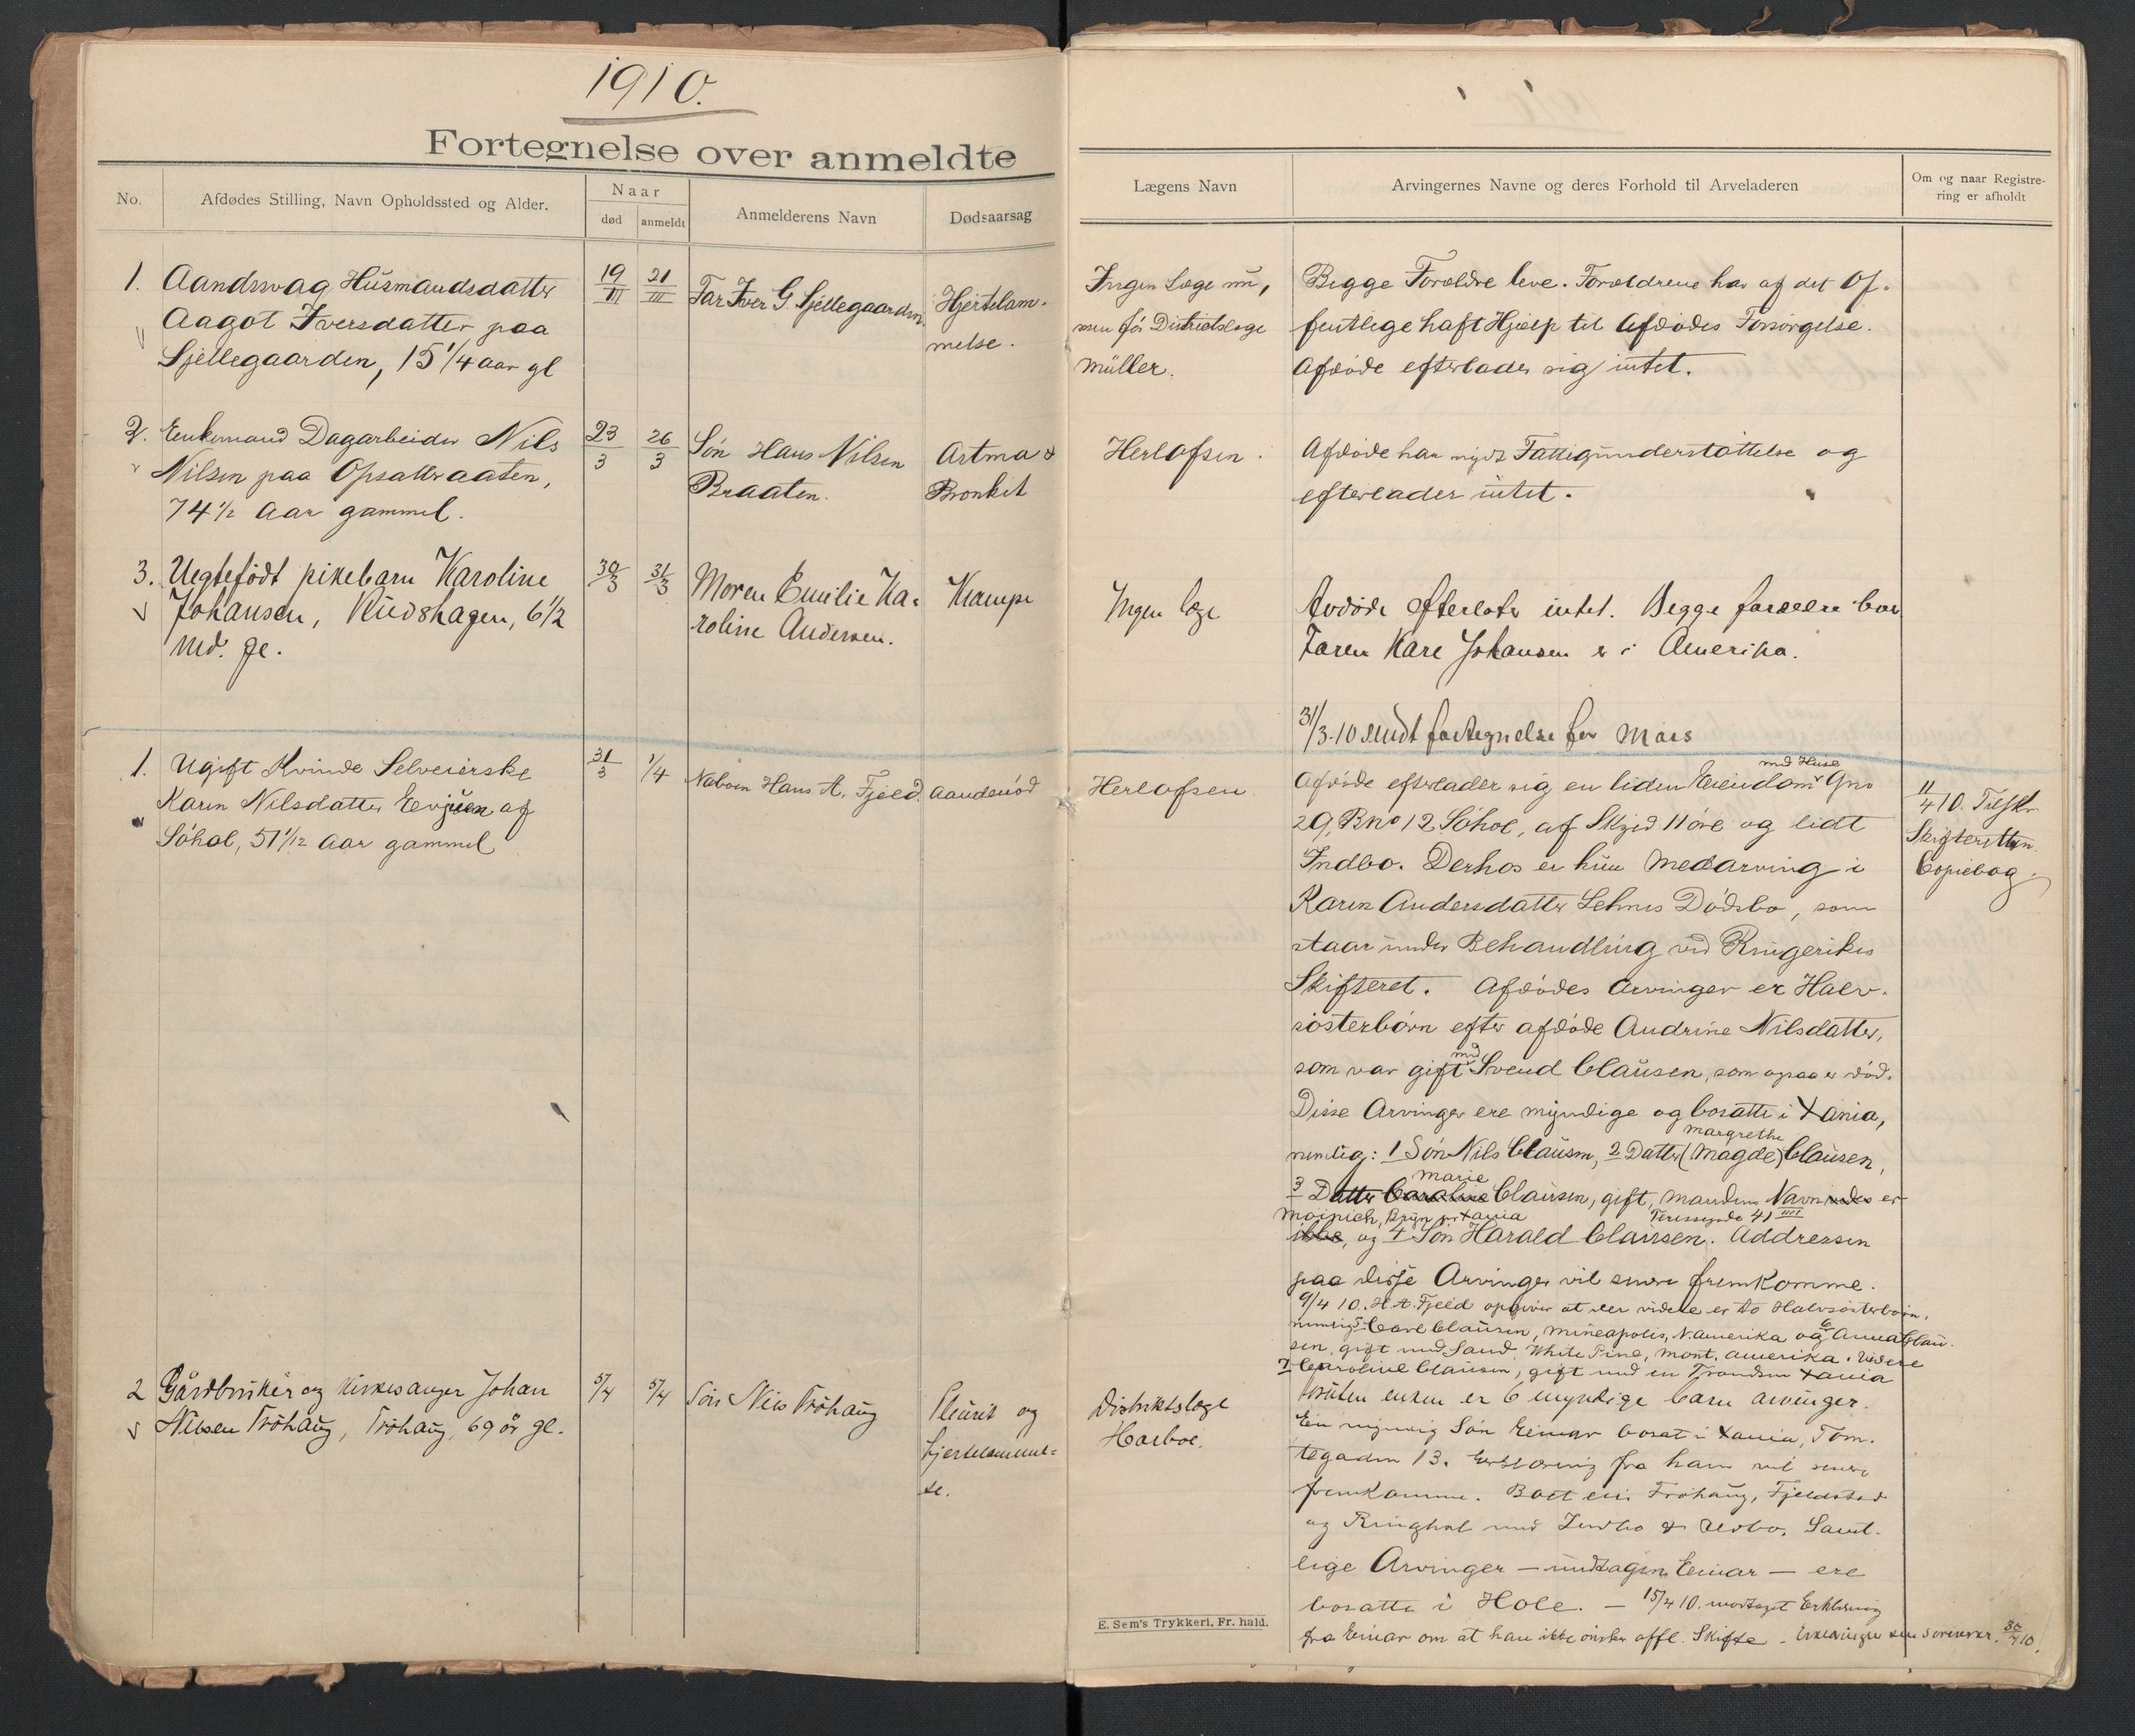 1910.
Fortegnelse over anmeldte
No.
Afdødes Stilling, Navn Opholdssted og Alder.
Naar
død
anmeldt
Anmelderens Navn
Dødsaarsag
Lægens Navn
Arvingernes Navne og deres Forhold til Arveladeren
Om og naar Registre-
ring er afholdt
1. Aandsvag Husmandsdatter
Aagot Iversdatter paa
Gjellegaarden, 15 1/4 aar gl
19/III
21/III
Far Iver G. Gjellegaarden
Hjertelam-
melse.
Ingen Læge nu,
men før Distriktslæge
Müller.
Begge Forældre leve. Forældrene har af det Of-
fentlige haft Hjælp til Afdødes Forsørgelse.
Afdøde efterlader sig intet.
2. Enkemand Dagarbeider Nils
Nilsen paa Opsalbraaten,
74 1/2 Aar gammel.
23/3
26/3
Søn Hans Nilsen
Braaten.
Astma &
Bronkit
Herlofsen.
Afdøde har nydt Fattigunderstøttelse og
efterlader intet.
3. Uegtefødt pikebarn Karoline
Johansen, Rudshagen, 6 1/2
md. gl.
30/3
31/3
Moren Emilie Ka-
roline Andersen.
Krampe
Ingen læge
Avdøde efterlater intet. Begge forældre
Faren Karl Johansen er i Amerika.
31/3-10 sendt fortegnelse for Mars
1. Ugift Kvinde Selveierske
Karen Nilsdatter Evjuen af
Søhol, 51 1/12 Aar gammel
31/3
1/4
Naboen Hans A. Fjeld.
Aandenød
Herlofsen
med Huse
Afdøde efterlader sig en liden Eiendom Gno
29, Bno 12 Søhol, af Skyld 11 øre og lidt
Indbo. Derhos er hun Medarving i
Karen Andersdatter Lehnes Dødsbo, som
staar under Behandling ved Ringerikes
Skifteret. Afdødes Arvinger er Halv-
søsterbørn efter afdøde Andrine Nilsdatter,
som var gift med Svend Clausen, som ogsaa er død.
Disse Arvinger ere myndige og bosatte i Xania,
Margrethe
nemlig: 1 Søn Nils Clausen, 2 Datter (Magde) Clausen,
Marie
3 Datter Caroline Clausen, gift, Mandens Navn er
ikke, og 4 Søn Harald Clausen. Addressen
paa disse Arvinger vil senere fremkomme.
9/4 10. H.A. Fjeld opgiver at der videre er to Halvsøsterbørn,
nemlig 5 Carl Clausen, Mineapolis, N.Amerika og 6 Anna Clau-
sen, gift med Sand, White Pine, Mont. Amerika. Videre
7 Caroline Clausen, gift med en Trondsen Xania
11/4 10. Tilskr.
Skifteretten.
Copiebog.
2 Gårdbruker og kirkesanger Johan
Nilsen Frøhaug, Frøhaug, 69 år gl.
5/4
5/4
Søn Nils Frøhaug
Pleurit og
hjertelammel-
se.
Distriktslæge
Harboe.
Foruten enken er 6 myndige barn arvinger.
En myndig Søn Einar bosat i Xania, Tom-
tegaden 13. Erklæring fra ham vil senere
fremkomme. Boet eier Frøhaug, Fjeldstad
og Ringhol med Indbo & Usbo. Samt-
lige Arvinger — undtagen Einar — ere
bosatte i Hole. — 15/4 10. modtaget Erklæring
fra Einar om at han ikke ønsker offl. Skifte
E. Sem's Trykkeri, Fr.hald.